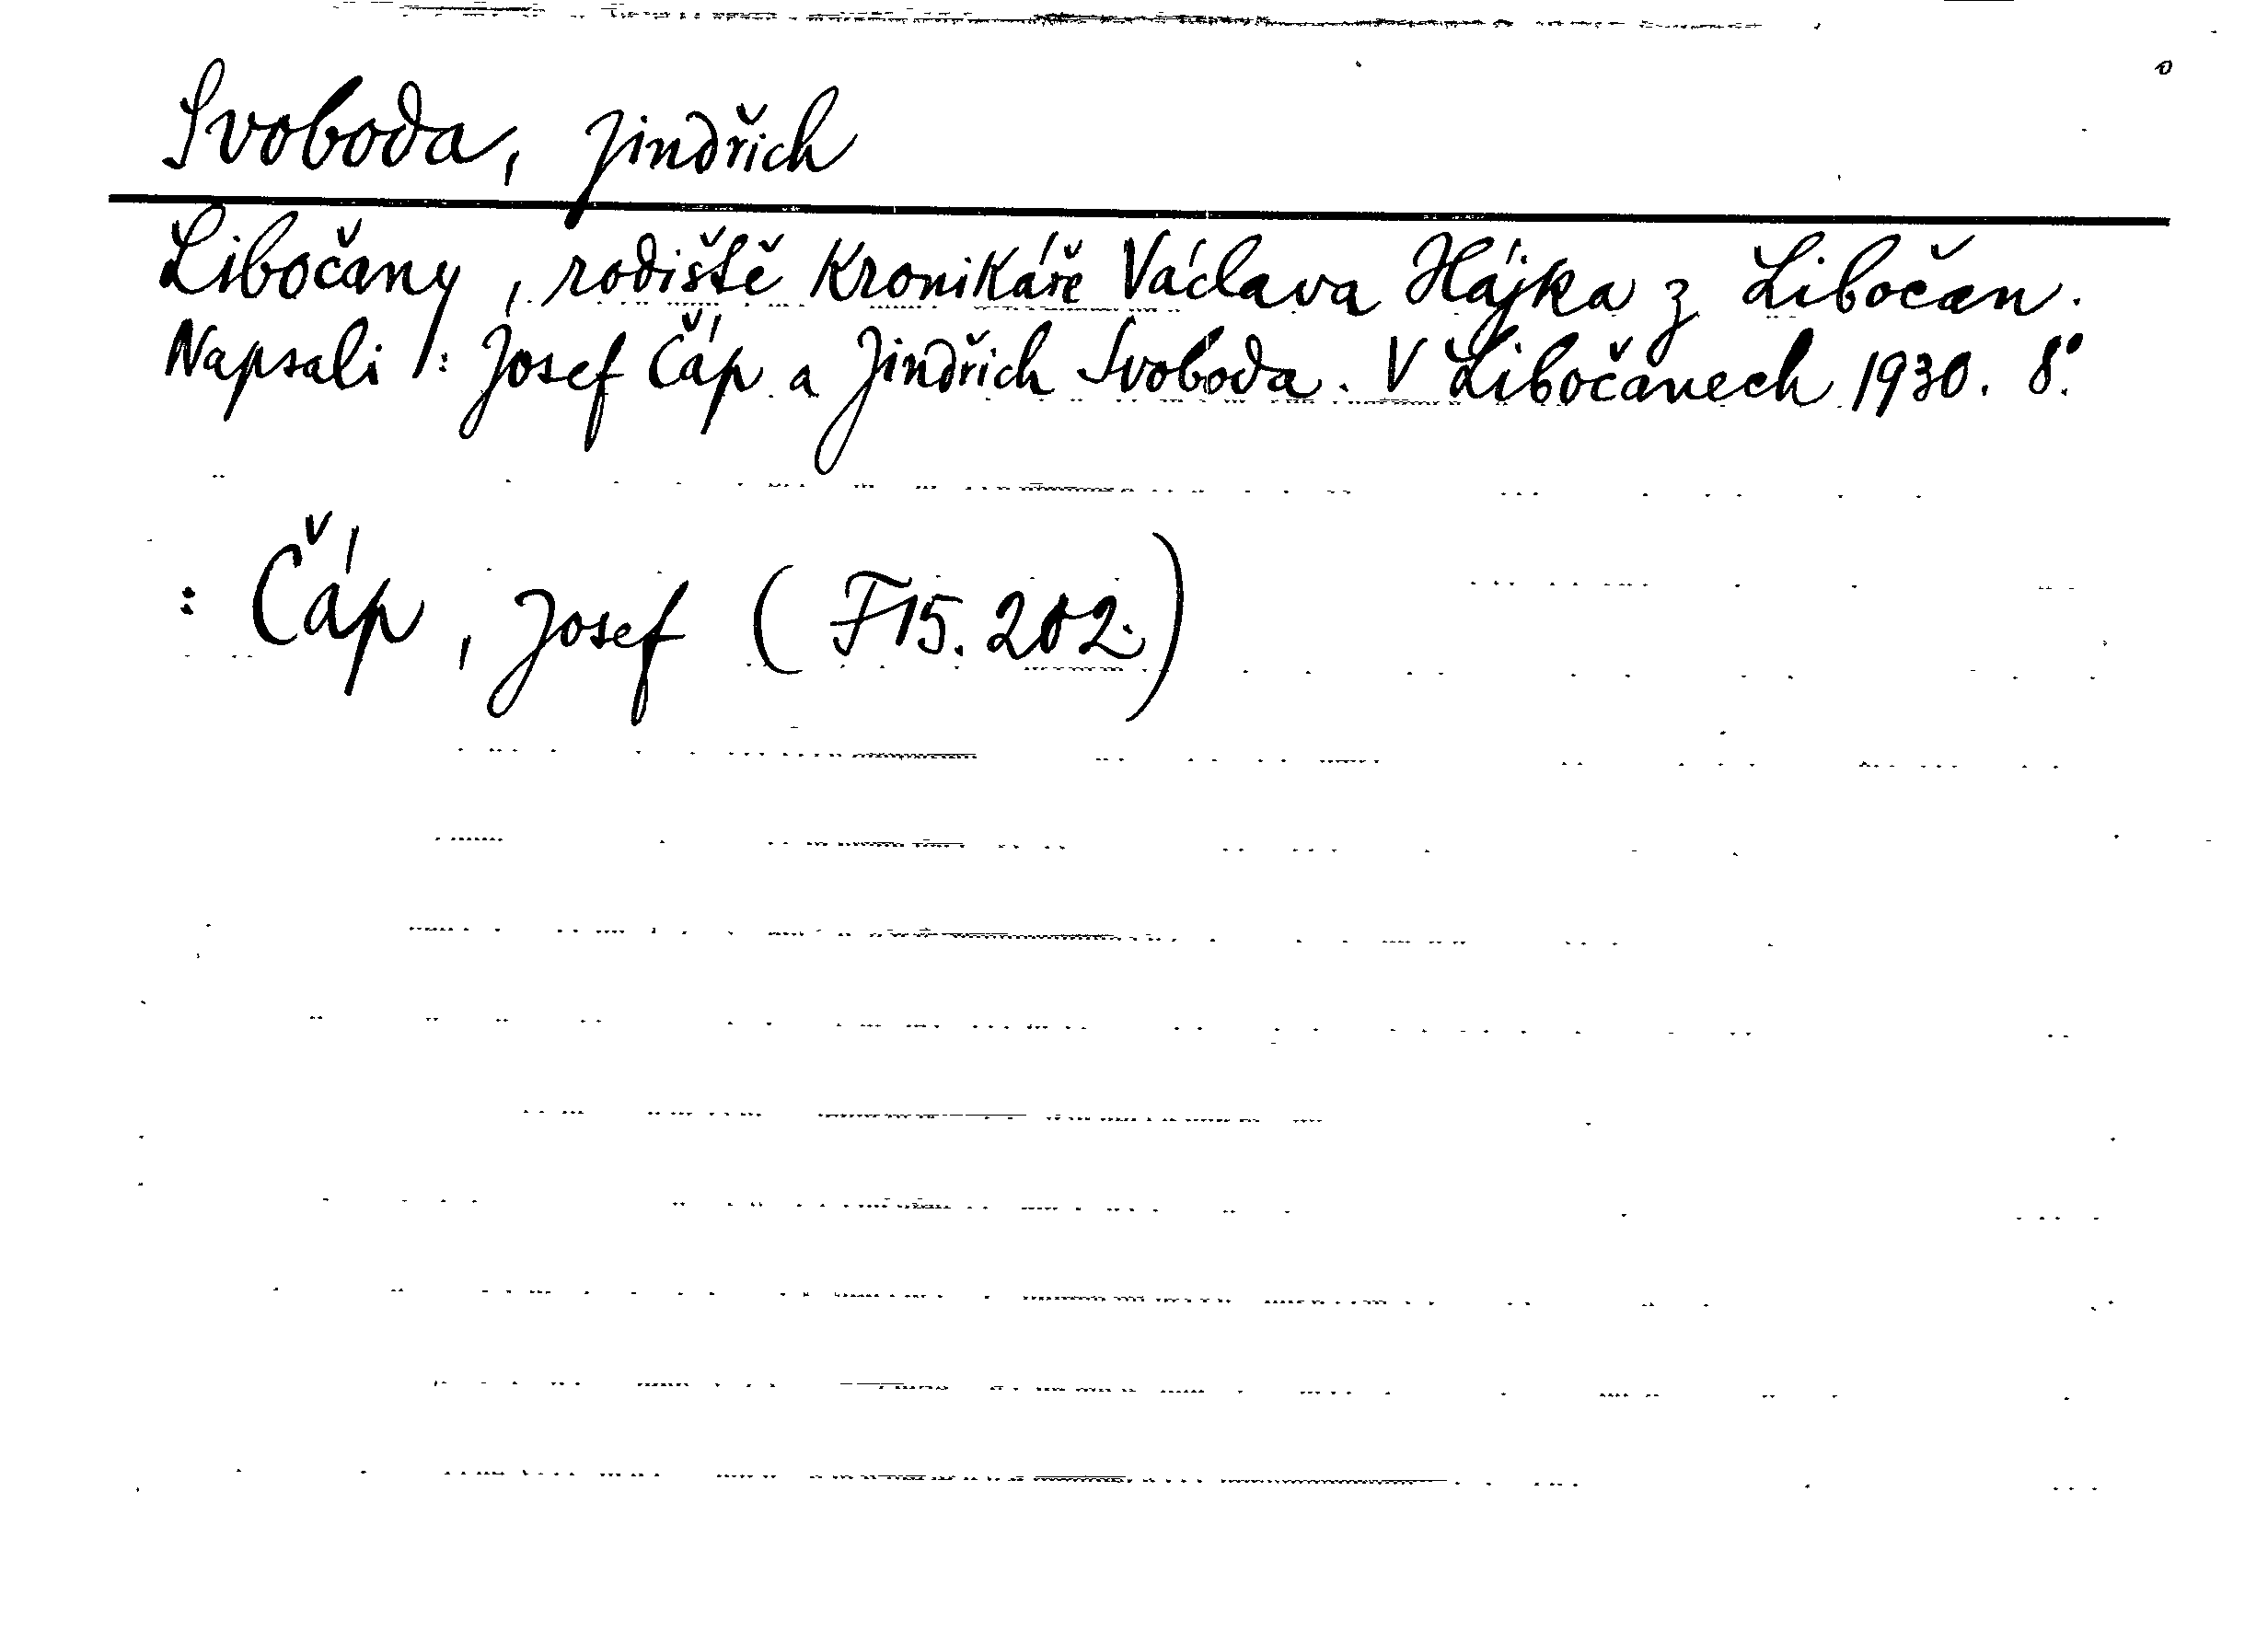 Svoboda, Jindřich
Libočany, rodiště kronikáře Václava Hájka z Libočan.
Napsali: Josef Čáp a Jindřich Svoboda. V Libočanech 1930. 8°.
: Čáp, Josef (F15.202.)